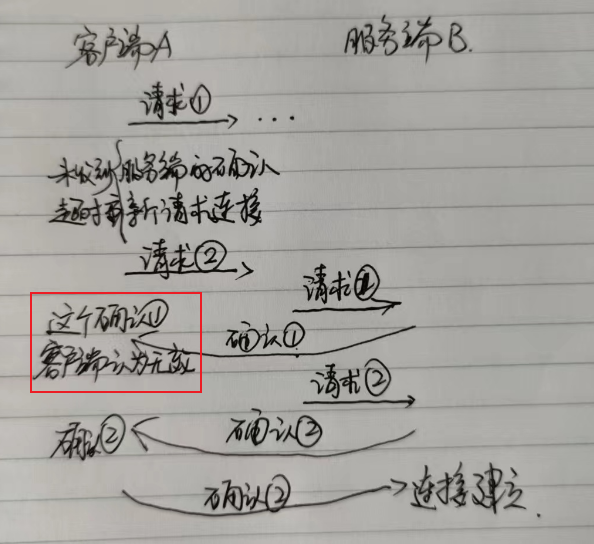 客户端A
服务端B.
请求① ...
未收到服务端的确认
超时重新请求连接
请求②
请求①
这个确认①
客户端认为无效
确认①
请求②
确认②
确认②
确认② 连接建立.